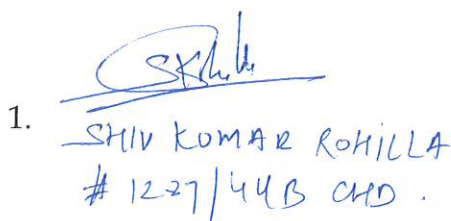 1.
SHIV KUMAR ROHILLA
# 1227/44B CHD.